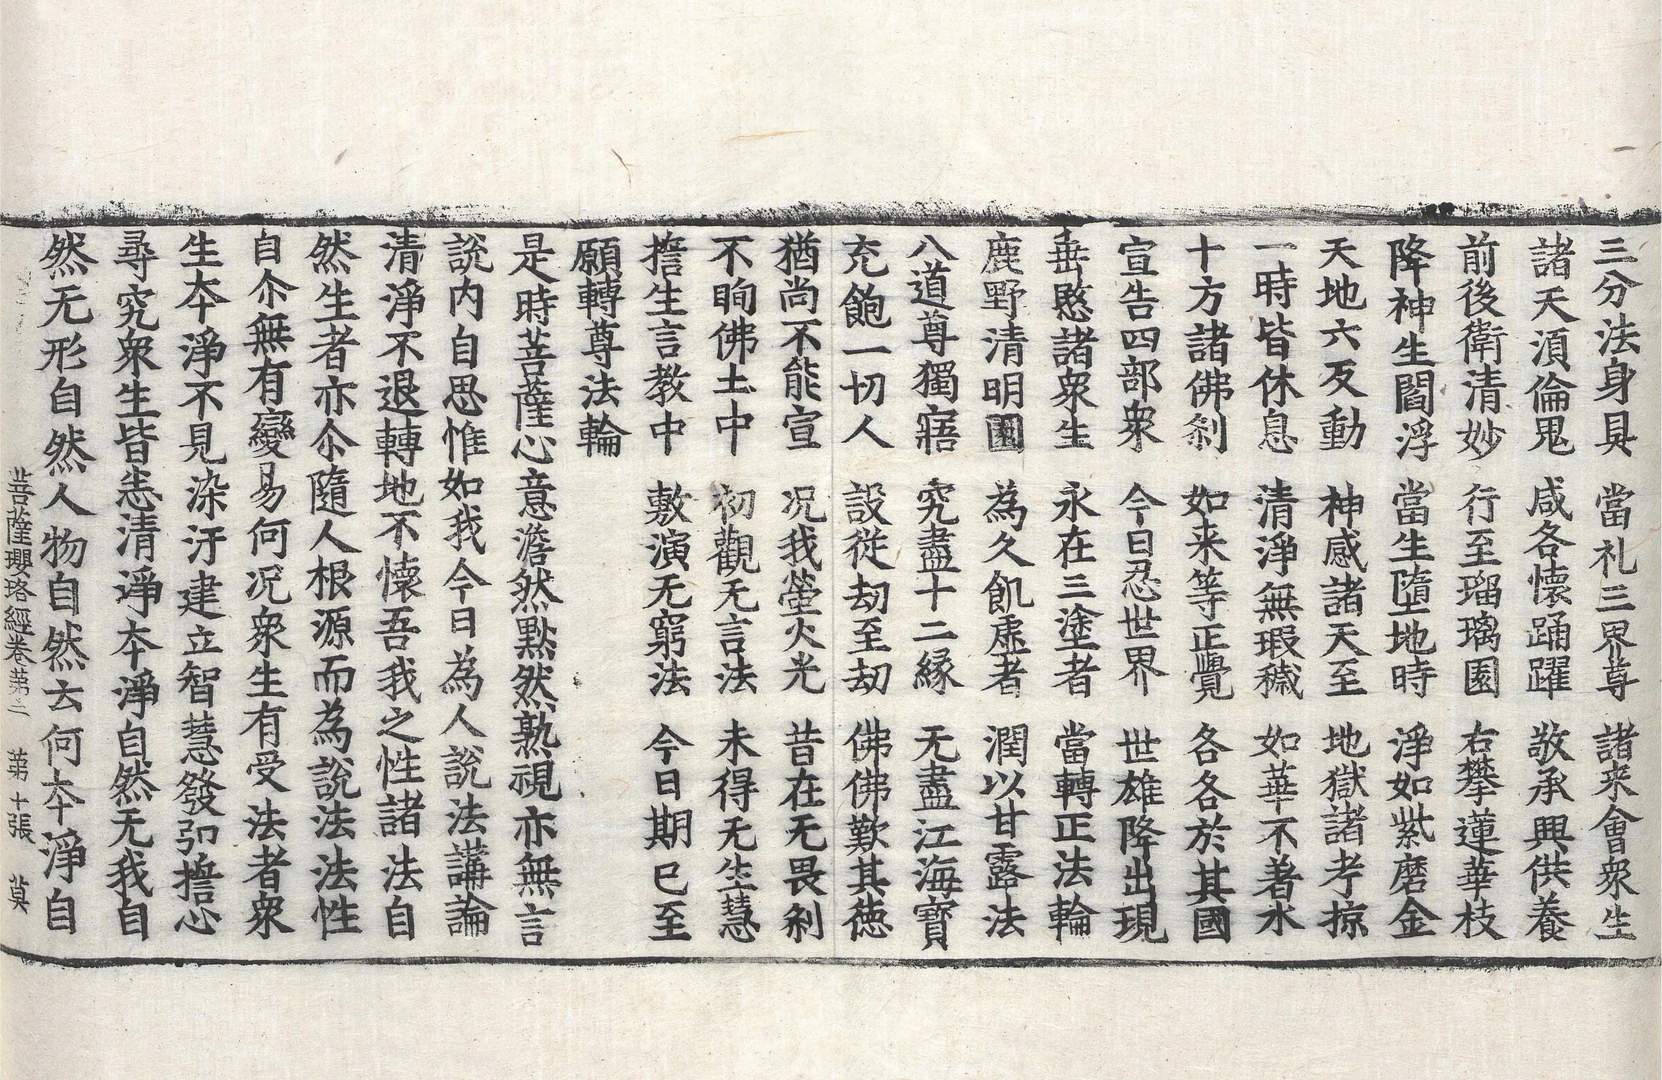 三分法身具　當礼三界尊　諸来會衆生
諸天湏倫鬼　咸各懷踊躍　敬承興供養
前後衛清妙　行至瑠璃園　右攀蓮華枝
降神生閻浮　當生墮地時　淨如紫磨金
天地六反動　神感諸天至　地獄諸考掠
一時皆休息　清淨無瑕穢　如華不著水
十方諸佛刹　如来等正覺　各各於其國
宣告四部衆　今日忍世界　世雄降出現
垂愍諸衆生　永在三塗者　當轉正法輪
鹿野清明園　為久飢虛者　潤以甘露法
八道尊獨寤　究盡十二縁　无盡江海寶
充飽一切人　設従劫至劫　佛佛歎其徳
猶尚不能宣　况我螢火光　昔在无畏刹
不眴佛土中　初觀无言法　未得无生慧
擔生言教中　敷演无窮法　今日期已至
願轉尊法輪
是時菩薩心意澹然黙然熟視亦無言
說内自思惟如我今日為人說法講論
清淨不退轉地不懷吾我之性諸法自
然生者亦尒隨人根源而為說法法性
自尒無有變易何况衆生有受法者衆
生夲淨不見染汙建立智慧發弘擔心
尋究衆生皆恚清淨夲淨自然无我自
然无形自然人物自然云何夲淨自
菩薩瓔珞經卷苐二　苐十張　莫